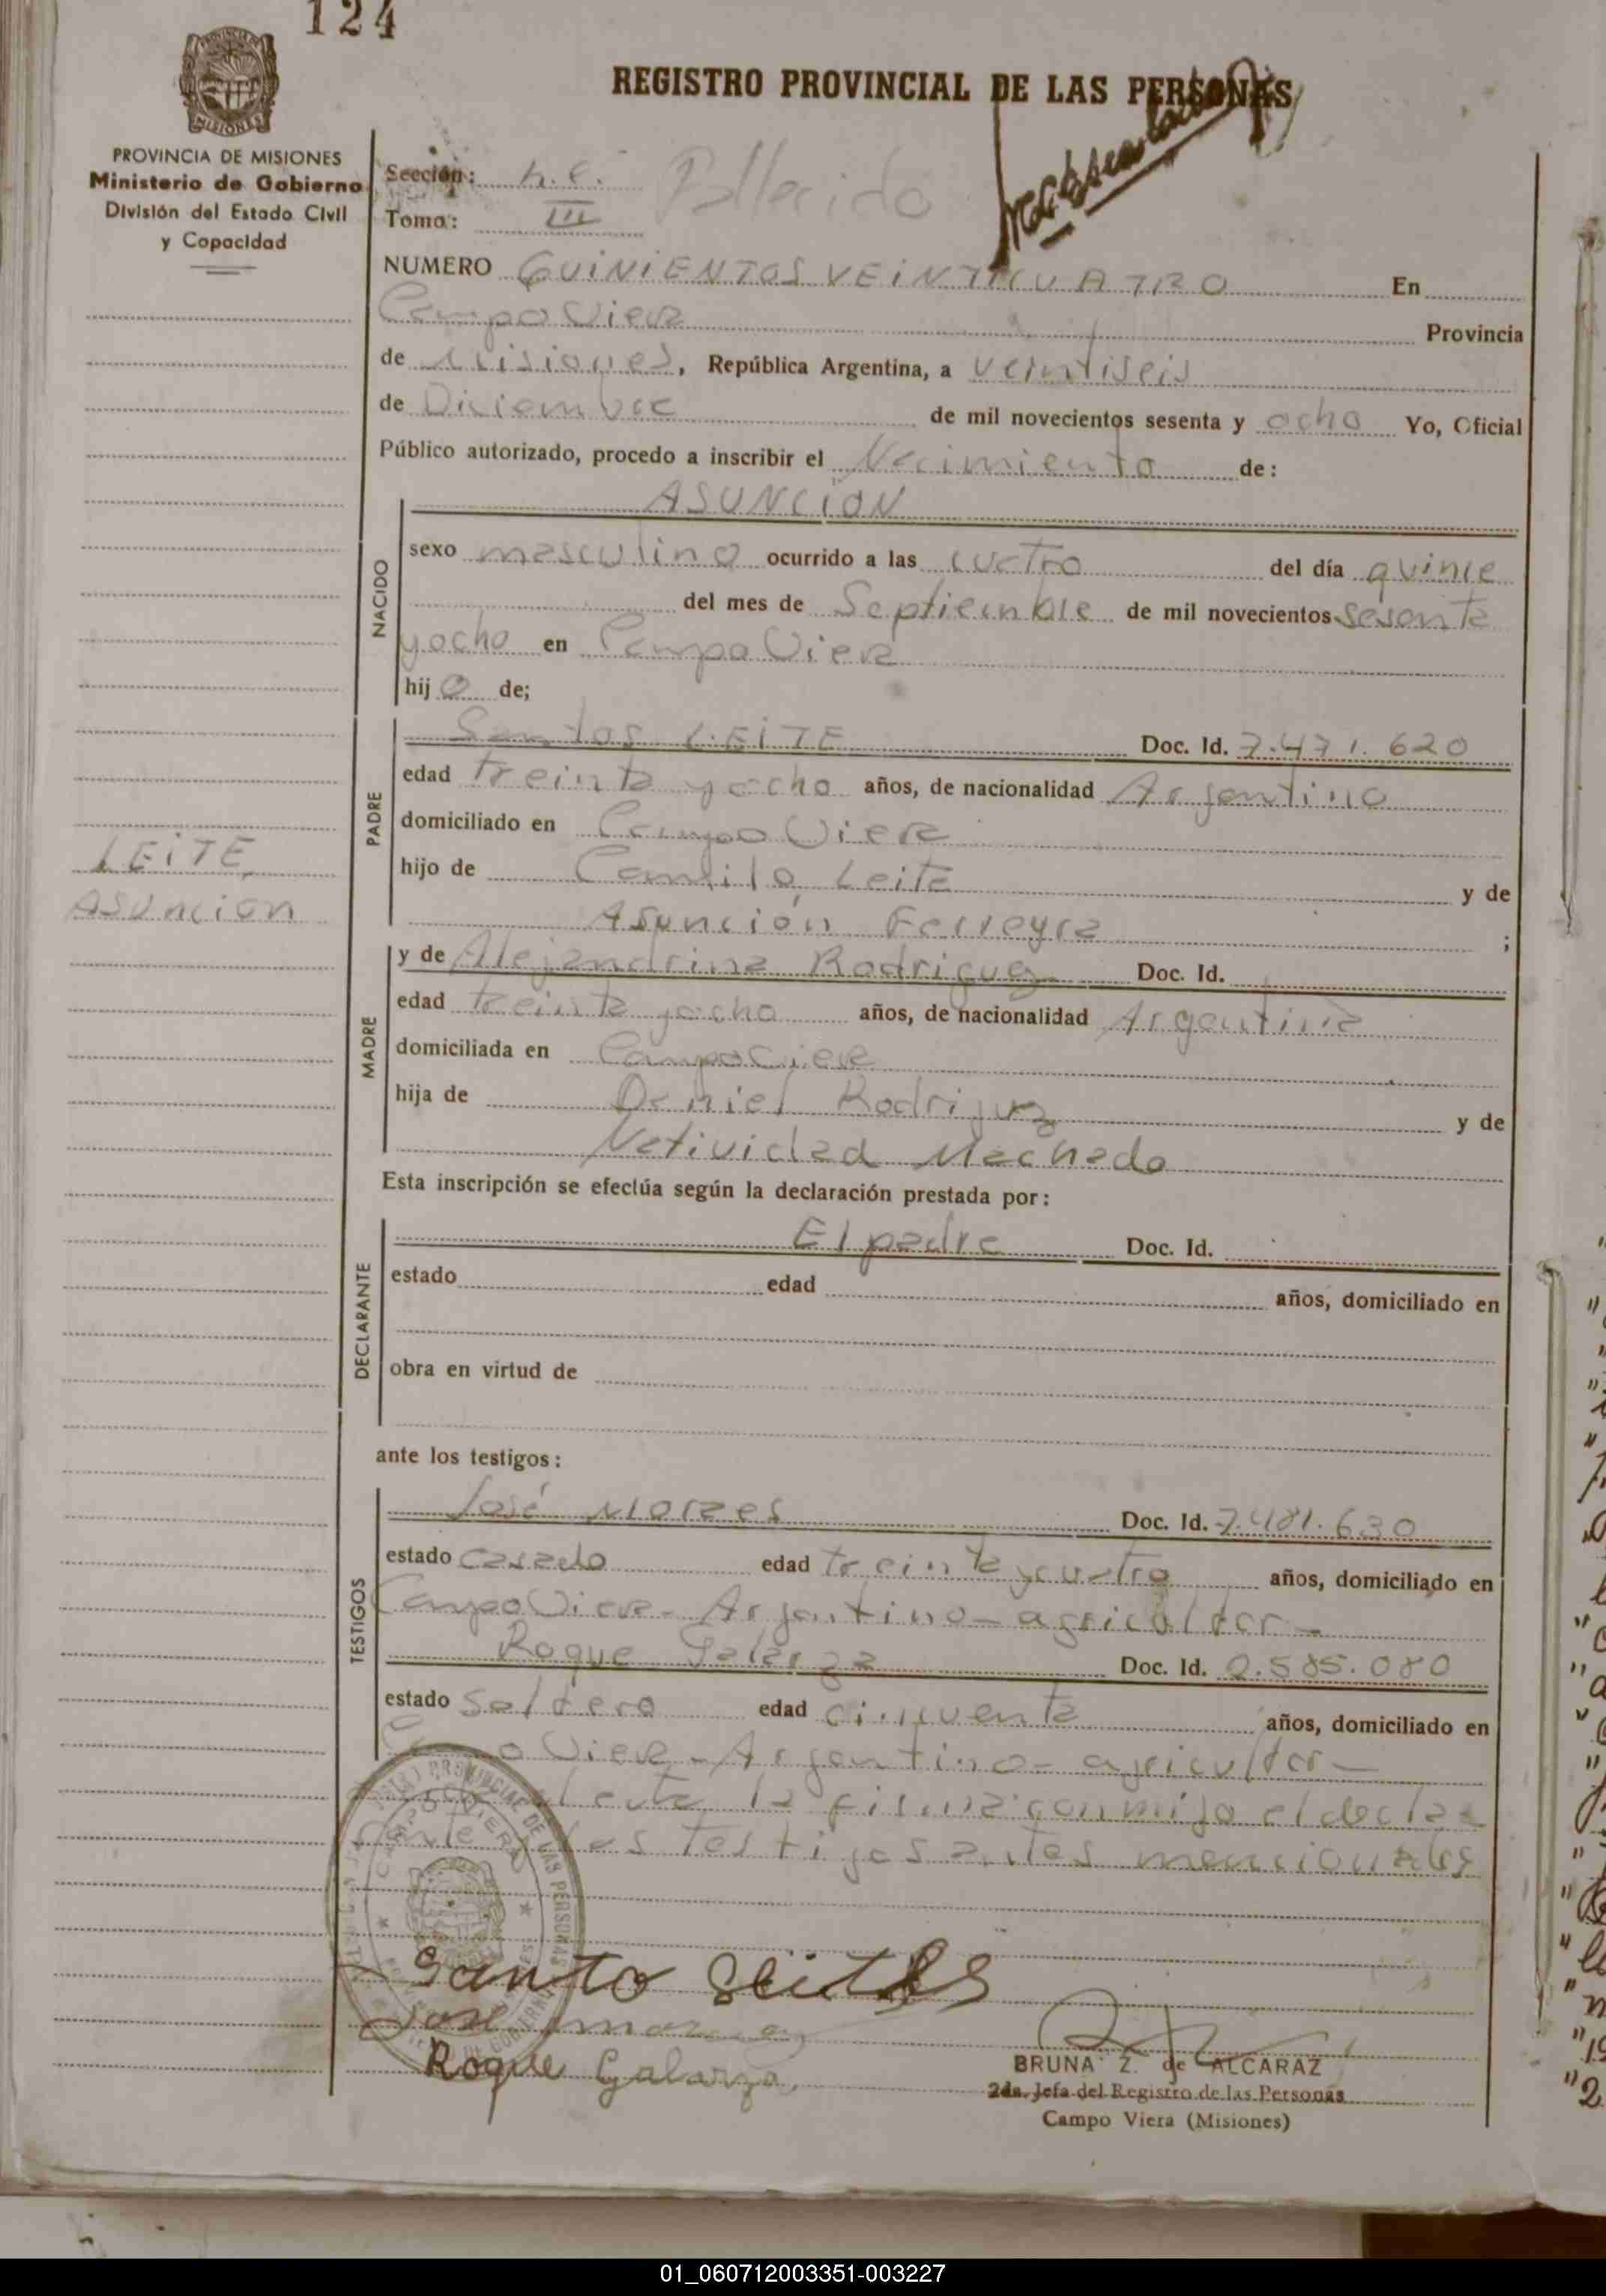 124
PROVINCIA DE MISIONES
MISIONES
REGISTRO PROVINCIAL DE LAS PERSONAS
PROVINCIA DE MISIONES
Ministerio de Gobierno
División del Estado Civil
y Capacidad
Sección: n. e. Fallecido
Tomo: III
NUMERO QUINIENTOS VEINTICUATRO En
Campo Viera Provincia
de Misiones, República Argentina, a veintiseis
de Diciembre de mil novecientos sesenta y ocho Yo, Oficial
Público autorizado, procedo a inscribir el Nacimiento de:
ASUNCION
NACIDO
sexo masculino ocurrido a las cuatro del día quince
del mes de Septiembre de mil novecientos sesenta
y ocho en Campo Viera
hijo de;
PADRE
Santos LEITE Doc. Id. 7.471.620
edad treinta y ocho años, de nacionalidad Argentino
domiciliado en Campo Viera
hijo de Camilo Leite y de
Asunción Ferreyra ;
LEITE,
Asuncion
MADRE
y de Alejandrina Rodriguez Doc. Id.
edad treinta y ocho años, de nacionalidad Argentina
domiciliada en Campo Viera
hija de Daniel Rodriguez y de
Natividad Machado
Esta inscripción se efectúa según la declaración prestada por:
DECLARANTE
El padre Doc. Id.
estado edad años, domiciliado en
obra en virtud de
ante los testigos:
TESTIGOS
José Moraes Doc. Id. 7.481.630
estado casado edad treinta y cuatro años, domiciliado en
Campo Viera - Argentino - agricultor -
Roque Galarza Doc. Id. 2.585.080
estado soltero edad cincuenta años, domiciliado en
Viera - Argentino - agricultor -
la firma conmigo el decla
rante los testigos antes mencionados
CAMPO VIERA
PROVINCIAL DE LAS PERSONAS
Santo Leites
José
Roque Galarza
BRUNA Z. de ALCARAZ
2da. Jefa del Registro de las Personas
Campo Viera (Misiones)
01_060712003351-003227